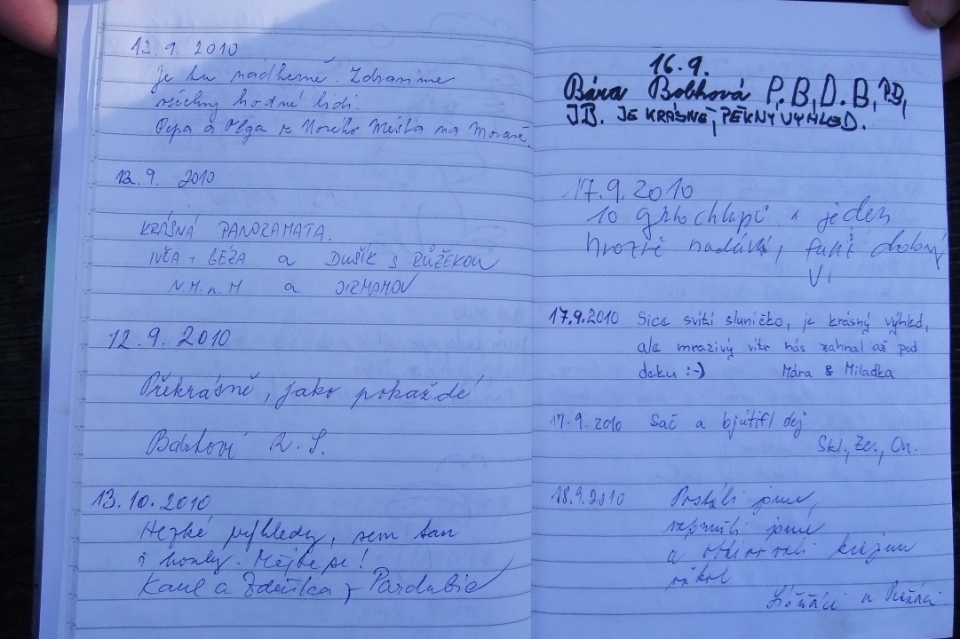 12.9. 2010
Je tu nádherně. Zdravíme
všechny hodné lidi.
Pepa a Olga z Nového Města na Moravě
12.9. 2010
KRÁSNÁ PANORAMATA.
IVČA + BÉŽA a DUŠÍK S RŮŽENKOU
N.M.n.M a JIRMANOV
12.9. 2010
Překrásně, jako pokaždé
R. S.
13.10.2010
Hezké výhledy, sem tam
i houby. Mějte se!
Karel a Zdeňka z Pardubic
16.9.
Bára Bobková P.B, D.B, PB,
JB. JE KRÁSNE, PĚKNÝ VÝHLED.
17.9.2010
10 jeden
hrozně nadává, fakt
17.9.2010 Sice svítí sluníčko, je krásný výhled,
ale mrazivý vítr nás zahnal až pod
deku :-) Mára & Miladka
17.9.2010 Sač a bjútifl dej
Skl., Ze., On.
18.9.2010 Postáli jsme,
jsme
a obdivovali krajinu
vůkol